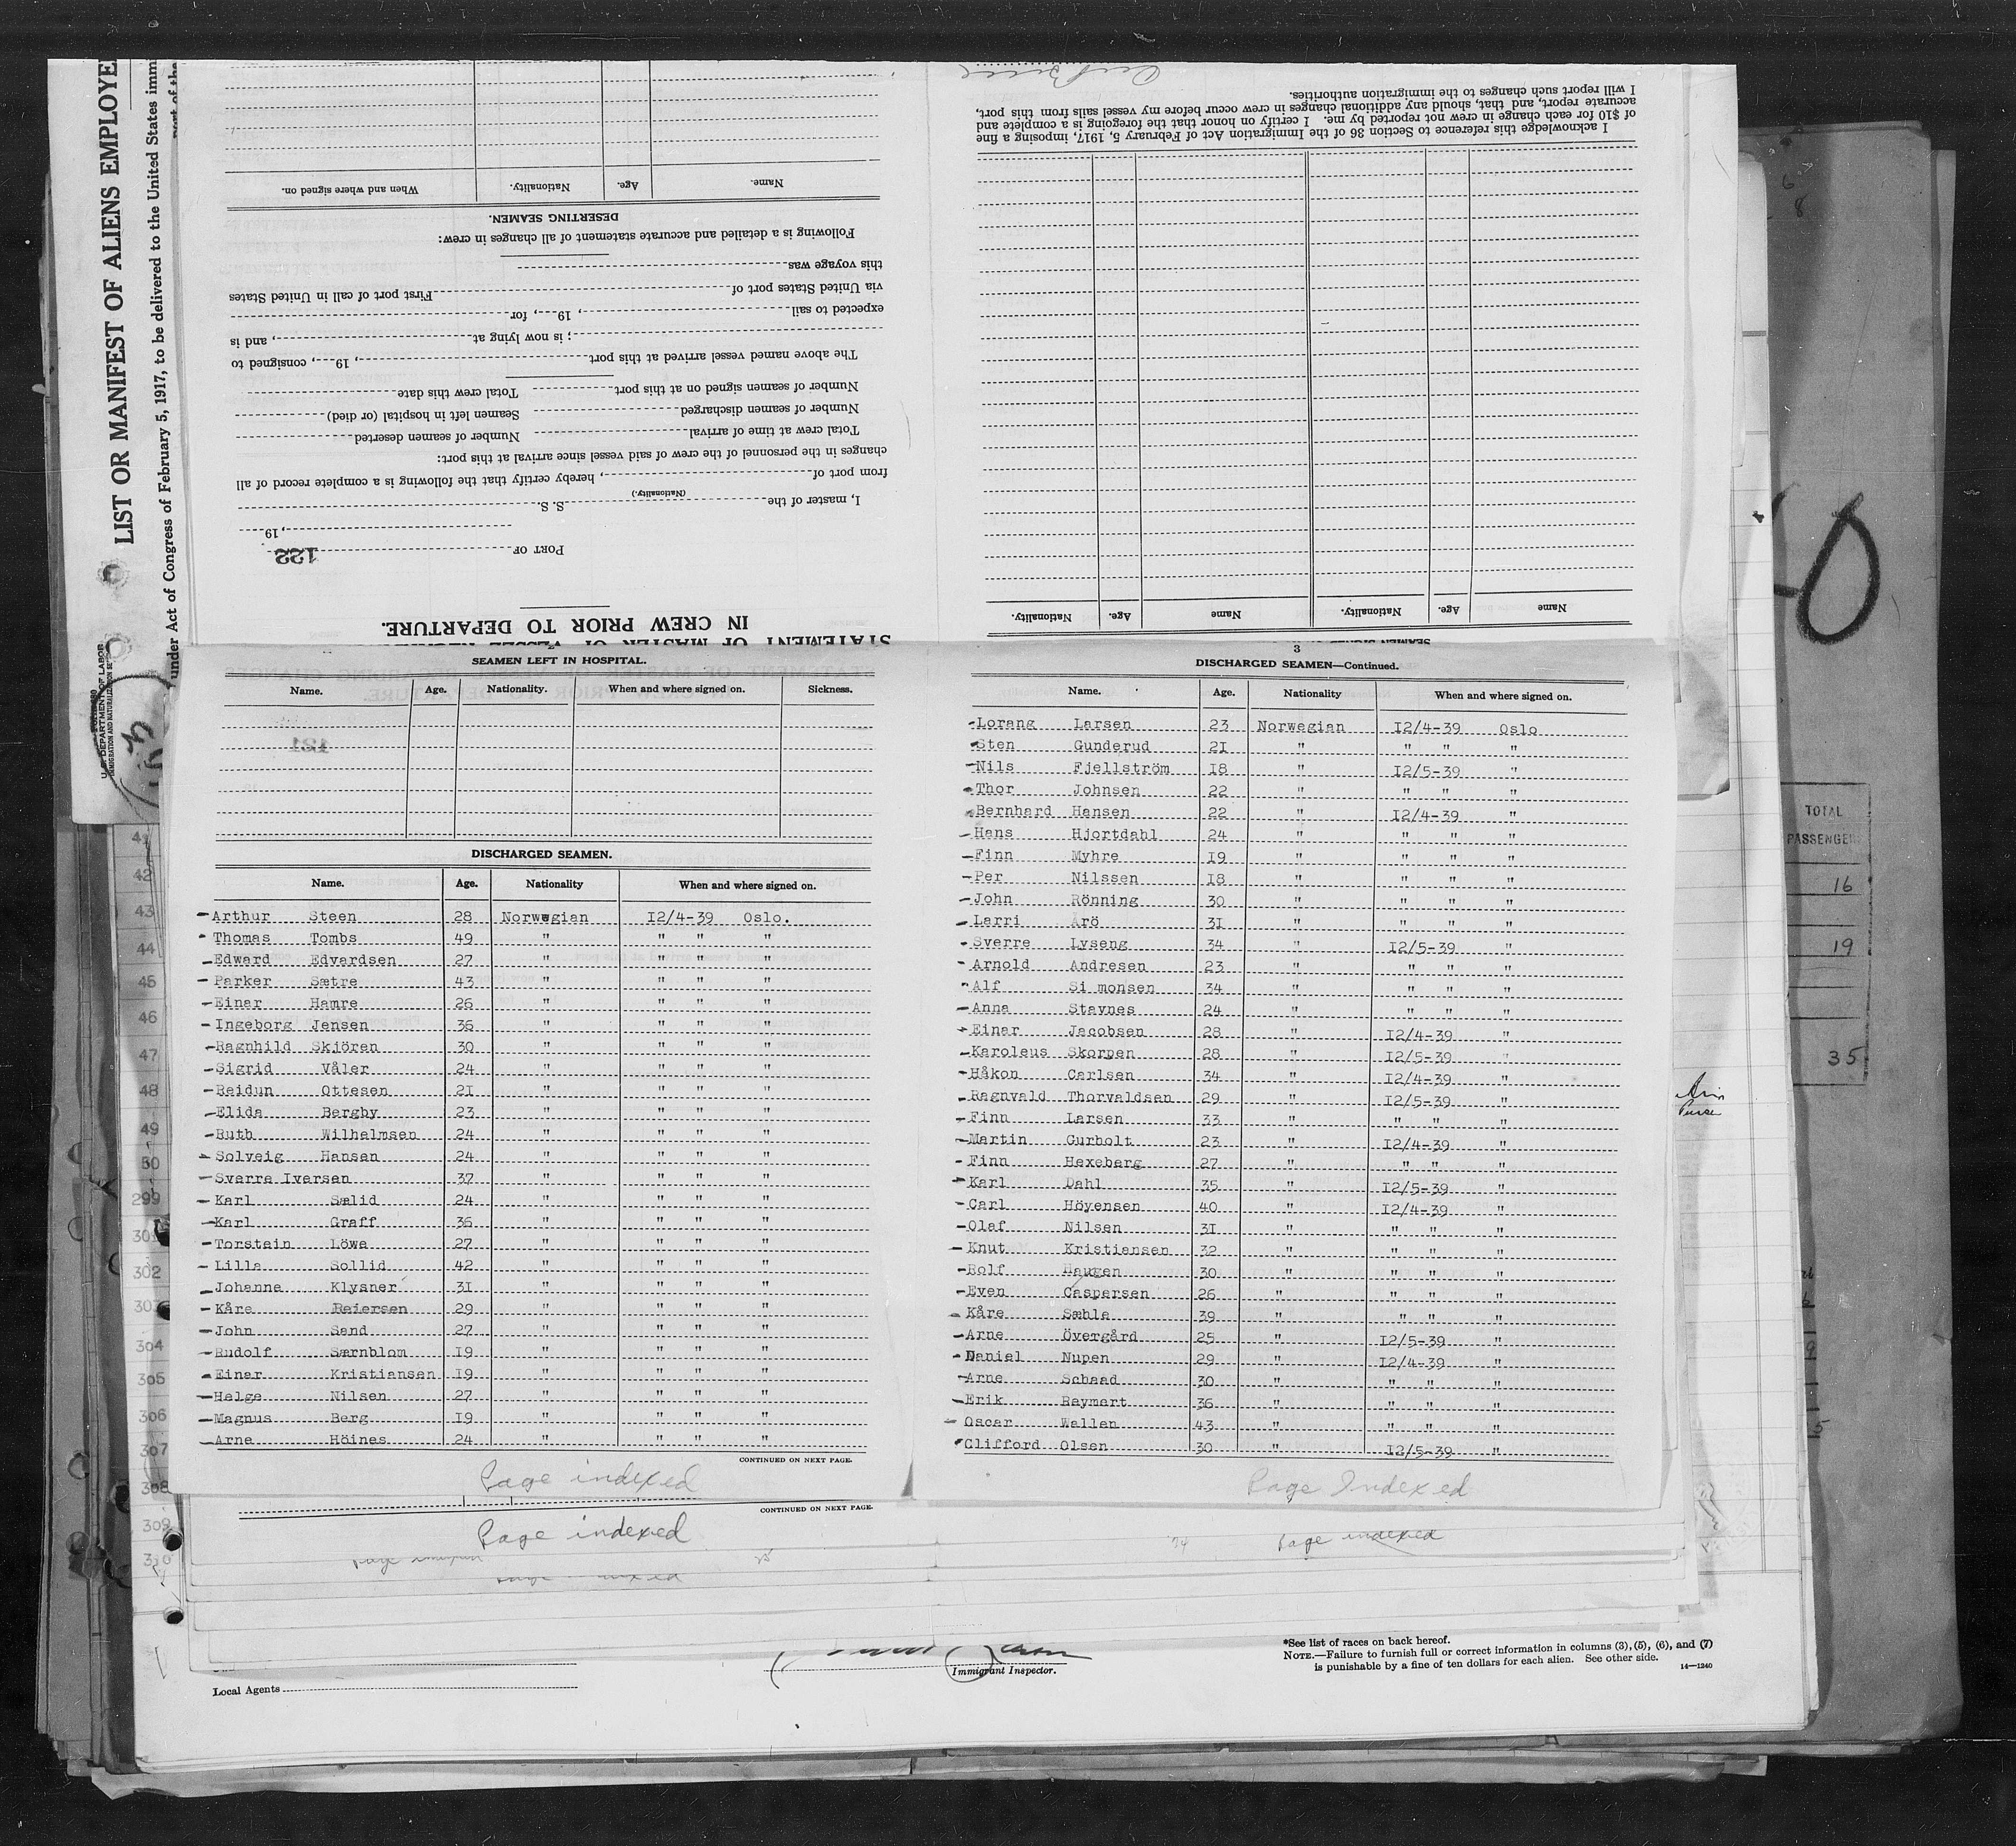 LIST OR MANIFEST OF ALIENS EMPLOYE
under Act of Congress of February 5, 1917, to be delivered to the United States immi
port of the
U. S. DEPARTMENT OF LABOR
IMMIGRATION AND NATURALIZATION SE
I will report such changes to the immigration authorities.
accurate report, and that, should any additional changes in crew occur before my vessel sails from this port,
of $10 for each change in crew not reported by me. I certify on honor that the foregoing is a complete and
I acknowledge this reference to Section 36 of the Immigration Act of February 5, 1917, imposing a fine
Name Age. Nationality. Name Age. Nationality.
STATEMENT OF MASTER OF VESSEL
IN CREW PRIOR TO DEPARTURE.
PORT OF 122
, 19
I, master of the S. S.
(Nationality.)
from port of , hereby certify that the following is a complete record of all
changes in the personnel of the crew of said vessel since arrival at this port:
Total crew at time of arrival Number of seamen deserted
Number of seamen discharged Seamen left in hospital (or died)
Number of seamen signed on at this port Total crew this date
The above named vessel arrived at this port , 19 , consigned to
; is now lying at , and is
expected to sail , 19 , for
via United States port of First port of call in United States
this voyage was
Following is a detailed and accurate statement of all changes in crew:
DESERTING SEAMEN.
Name. Age. Nationality. When and where signed on.
SEAMEN LEFT IN HOSPITAL.
Name. Age. Nationality. When and where signed on. Sickness.
121
DISCHARGED SEAMEN.
Name. Age. Nationality When and where signed on.
Arthur Steen 28 Norwegian 12/4-39 Oslo.
Thomas Tombs 49 " " " "
Edward Edvardsen 27 " " " "
Parker Sætre 43 " " " "
Einar Hamre 26 " " " "
Ingeborg Jensen 36 " " " "
Ragnhild Skjören 30 " " " "
Sigrid Våler 24 " " " "
Reidun Ottesen 21 " " " "
Elida Bergby 23 " " " "
Ruth Wilhelmsen 24 " " " "
Solveig Hansen 24 " " " "
Sverre Iversen 37 " " " "
Karl Sælid 24 " " " "
Karl Graff 36 " " " "
Torstein Löwe 27 " " " "
Lilla Sollid 42 " " " "
Johanne Klysner 31 " " " "
Kåre Reiersen 29 " " " "
John Sand 27 " " " "
Rudolf Særnblom 19 " " " "
Einar Kristiansen 19 " " " "
Helge Nilsen 27 " " " "
Magnus Berg 19 " " " "
Arne Höines 24 " " " "
CONTINUED ON NEXT PAGE.
Page indexed
3
DISCHARGED SEAMEN—Continued.
Name. Age. Nationality When and where signed on.
Lorang Larsen 23 Norwegian 12/4-39 Oslo
Sten Gunderud 21 " " " "
Nils Fjellström 18 " 12/5-39 "
Thor Johnsen 22 " " " "
Bernhard Hansen 22 " 12/4-39 "
Hans Hjortdahl 24 " " " "
Finn Myhre 19 " " " "
Per Nilssen 18 " " " "
John Rönning 30 " " " "
Larri Årö 31 " " " "
Sverre Lyseng 34 " 12/5-39 "
Arnold Andresen 23 " " " "
Alf Si monsen 34 " " " "
Anna Stavnes 24 " " " "
Einar Jacobsen 28 " 12/4-39 "
Karoleus Skorpen 28 " 12/5-39 "
Håkon Carlsen 34 " 12/4-39 "
Ragnvald Thorvaldsen 29 " 12/5-39 "
Finn Larsen 33 " " " "
Martin Gurholt 23 " 12/4-39 "
Finn Hexeberg 27 " " " "
Karl Dahl 35 " 12/5-39 "
Carl Höyensen 40 " 12/4-39 "
Olaf Nilsen 31 " " " "
Knut Kristiansen 32 " " " "
Rolf Haugen 30 " " " "
Even Caspersen 26 " " " "
Kåre Sæhle 39 " " " "
Arne Övergård 25 " 12/5-39 "
Daniel Nupen 29 " 12/4-39 "
Arne Schaad 30 " " " "
Erik Reymert 36 " " " "
Oscar Wallen 43 " " " "
Clifford Olsen 30 " 12/5-39 "
Page Indexed
CONTINUED ON NEXT PAGE.
Page indexed
Page indexed
Immigrant Inspector.
Local Agents
*See list of races on back hereof.
NOTE.—Failure to furnish full or correct information in columns (3), (5), (6), and (7)
is punishable by a fine of ten dollars for each alien. See other side.
14—1240
41
42
43
44
45
46
47
48
49
50
299
301
302
303
304
305
306
307
308
309
310
TOTAL
PASSENGER
16
19
35